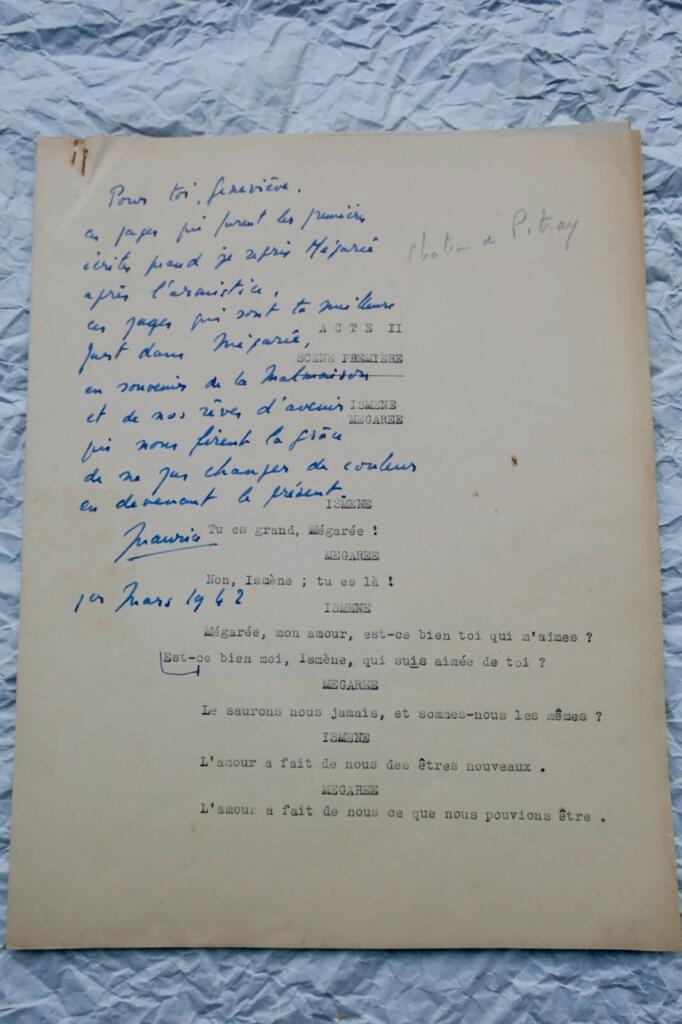 Pour toi, Geneviève,
ces pages qui furent les premières
écrites quand je repris Mégarée
après l'armistice,
ces pages qui sont ta meilleure
part dans Mégarée,
en souvenir de la Malmaison
et de nos rêves d'avenir
qui nous firent la grâce
de ne pas changer de couleur
en devenant le présent.
Maurice
1er Mars 1942
Pitray
ACTE II
SCENE PREMIERE
ISMENE
MEGAREE
ISMENE
Tu es grand, Mégarée !
MEGAREE
Non, Ismène ; tu es là !
ISMENE
Mégarée, mon amour, est-ce bien toi qui m'aimes ?
Est-ce bien moi, Ismène, qui suis aimée de toi ?
MEGAREE
Le saurons nous jamais, et sommes-nous les mêmes ?
ISMENE
L'amour a fait de nous des êtres nouveaux .
MEGAREE
L'amour a fait de nous ce que nous pouvions être .